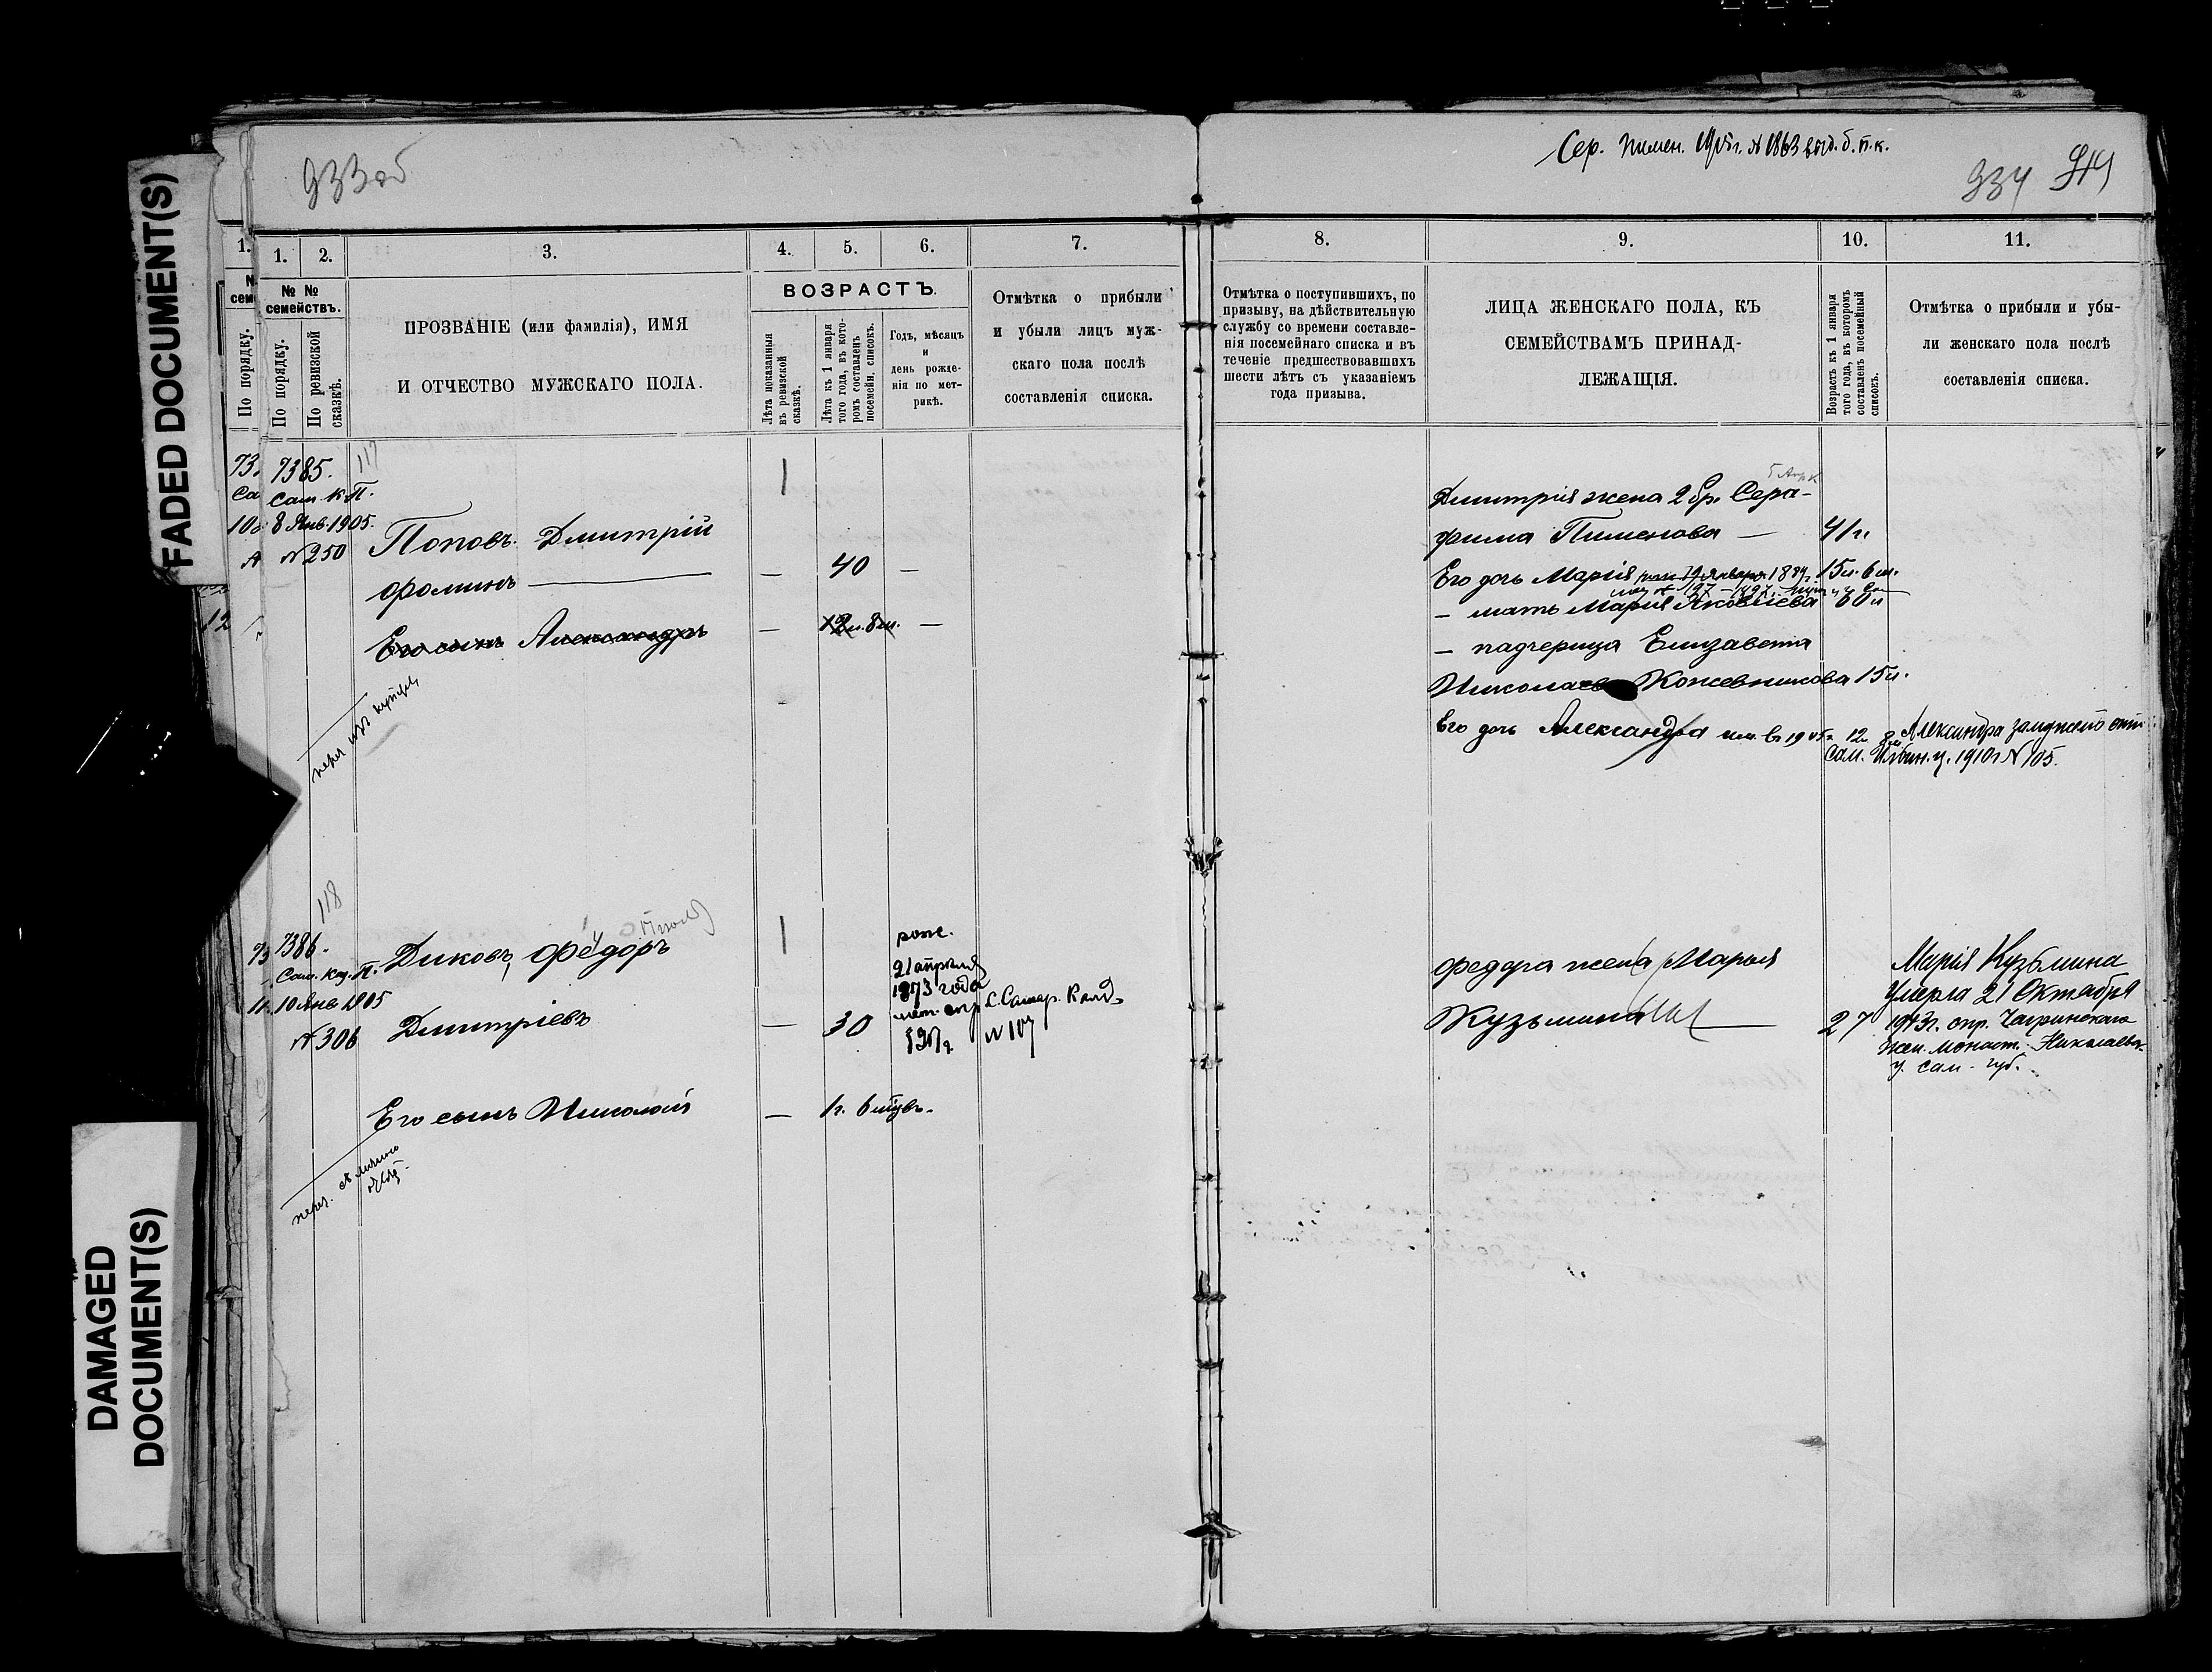 FADED DOCUMENT(S)
DAMAGED
DOCUMENT(S)
933об
Сер. Пимен. № 1863 выд. б. п. к.
934
1.
2.
3.
4.
5.
6.
7.
№ №
семействъ.
По порядку.
По ревизской сказкѣ.
ПРОЗВАНІЕ (или фамилія), ИМЯ
И ОТЧЕСТВО МУЖСКАГО ПОЛА.
ВОЗРАСТЪ.
Лѣта показанныя въ ревизской сказкѣ.
Лѣта къ 1 января того года, въ которомъ составленъ посемейн. списокъ.
Годъ, мѣсяцъ
и
день рожде-
нія по мет-
рикѣ.
Отмѣтка о прибыли
и убыли лицъ муж-
скаго пола послѣ
составленія списка.
117
7385.
Сам. К. П.
8 Янв. 1905.
№ 250
Поповъ Дмитрій
Фоминъ — — 40 —
Его сынъ Александръ — 12 л. 8 м. —
118
7386.
Сам. Каз. П.
10 Янв 1905
№ 306
Диковъ, Фёдоръ
Дмитріевъ — 30
рож.
21 апрѣля
1873 года
№ 107
Его сынъ Николай — 1 г. 6 мѣс.
перег.
8.
9.
10.
11.
Отмѣтка о поступившихъ, по
призыву, на дѣйствительную
службу со времени составле-
нія посемейнаго списка и въ
теченіе предшествовавшихъ
шести лѣтъ съ указаніемъ
года призыва.
ЛИЦА ЖЕНСКАГО ПОЛА, КЪ
СЕМЕЙСТВАМЪ ПРИНАД-
ЛЕЖАЩІЯ.
Возрастъ къ 1 января того года, въ которомъ составленъ посемейный списокъ.
Отмѣтка о прибыли и убы-
ли женскаго пола послѣ
составленія списка.
Дмитрія жена 2 бр. Сера-
фима Пименова — 41 г.
Его дочь Марія января 1889 15 л. 6 м.
— мать Марія Яковлева 60 л
— падчерица Елизавета
Николаев Кожевникова 15 л.
Его дочь Александра 12 8 Александра замужемъ
Сам. ц. 1910 г № 105.
Федора жена Марья
Кузьмина — 27
Марія Кузьмина
умерла 21 Октября
1913 г. опр. Чагринскаго
Жен. монаст. Николаевск.
у. Сам. губ.